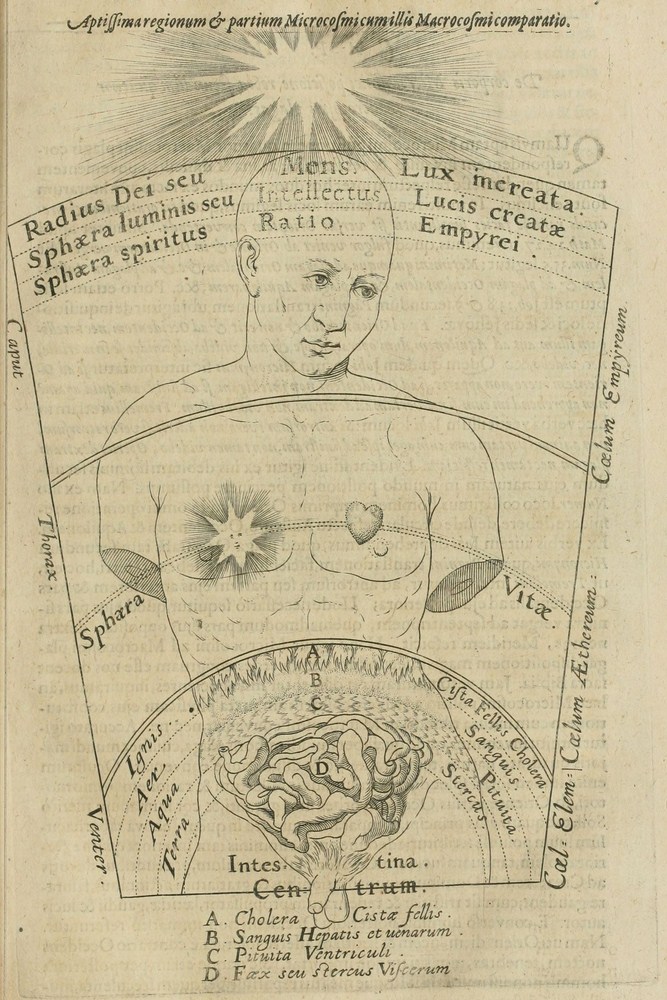 Aptissima regionum & partium Microcosmi cum illis Macrocosmi comparatio.
Radius Dei seu Mens. Lux increata.
Sphæra luminis seu Intellectus Lucis creatæ
Sphæra spiritus Ratio. Empyrei.
Caput.
Cœlum Empÿreum.
Thorax
Sphæra Vitæ.
Cœlum Æthereum.
A
B
C
D
Ignis.
Aer.
Aqua
Terra
Cista Fellis Cholera
Sanguis
Pituita
Stercus
Venter.
Cœl: Elem:
Intestina.
Centrum.
A. Cholera Cistæ fellis.
B. Sanguis Hepatis et uenarum.
C. Pituita Ventriculi.
D. Fæx seu stercus Viscerum